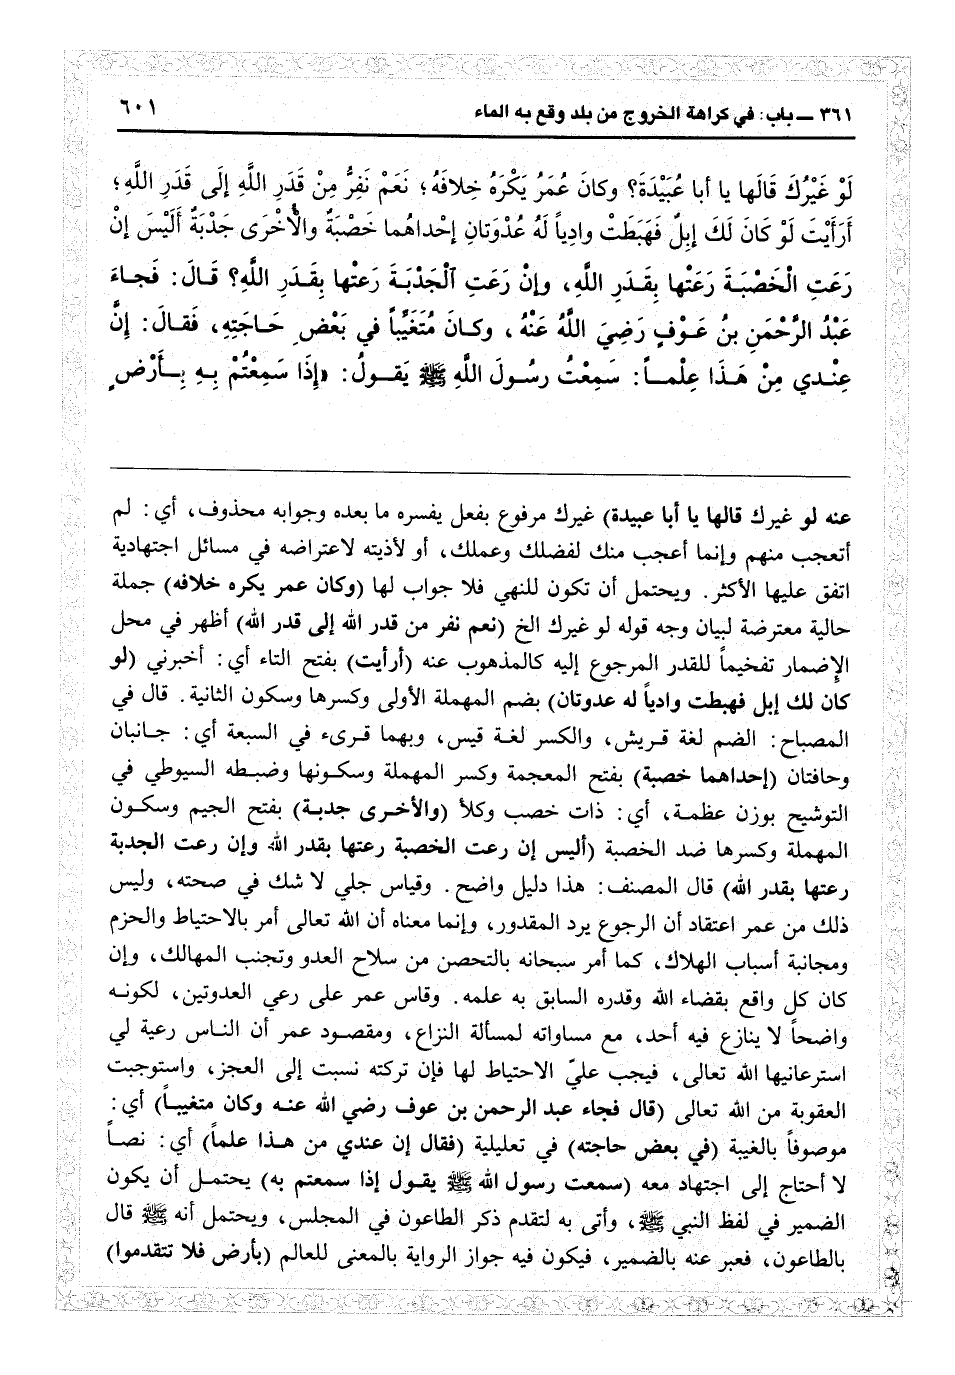 ٣٦١ ــ باب: في كراهة الخروج من بلد وقع به الماء
٦٠١
لَوْ غَيْرُكَ قَالَها يا أبا عُبَيْدَةَ؟ وكانَ عُمَرُ يَكْرَهُ خِلافَهُ؛ نَعَمْ نَفِرُّ مِنْ قَدَرِ اللَّهِ إلَى قَدَرِ اللَّهِ؛
أرَأيْتَ لَوْ كَانَ لَكَ إبِلٌ فَهَبَطَتْ وادِياً لَهُ عُدْوَتانِ إحْداهُما خَصْبَةٌ والأُخْرَى جَدْبَةٌ أَلَيْسَ إنْ
رَعَتِ الْخَصْبَـةَ رَعَتْها بِقَـدَرِ اللَّهِ، وإنْ رَعَتِ الْجَدْبَـةَ رَعتْها بِقَـدَرِ اللَّهِ؟ قَـالَ: فَجـاءَ
عَبْدُ الرَّحْمَنِ بنُ عَـوْفٍ رَضِيَ اللَّهُ عَنْهُ، وكـانَ مُتَغَيِّباً في بَعْضِ حَـاجَتِهِ، فَقـالَ: إنَّ
عِنْـدي مِنْ هَـذَا عِلْمـاً: سَمِعْتُ رسُـولَ اللَّهِ ﷺ يَقـولُ: «إذَا سَمِعْتُمْ بِـهِ بِـأَرْضٍ
عنه لو غيرك قالها يا أبا عبيدة) غيرك مرفوع بفعل يفسره ما بعده وجوابه محذوف، أي: لم
أتعجب منهم وإنما أعجب منك لفضلك وعملك، أو لأذيته لاعتراضه في مسائل اجتهادية
اتفق عليها الأكثر. ويحتمل أن تكون للنهي فلا جواب لها (وكان عمر يكره خلافه) جملة
حالية معترضة لبيان وجه قوله لو غيرك الخ (نعم نفر من قدر الله إلى قدر الله) أظهر في محل
الإضمار تفخيماً للقدر المرجوع إليه كالمذهوب عنه (أرأيت) بفتح التاء أي: أخبرني (لو
كان لك إبل فهبطت وادياً له عدوتان) بضم المهملة الأولى وكسرها وسكون الثانية. قال في
المصباح: الضم لغة قـريش، والكسر لغـة قيس، وبهما قـرىء في السبعة أي: جـانبان
وحافتان (إحداهما خصبة) بفتح المعجمة وكسر المهملة وسكـونها وضبـطه السيوطي في
التوشيح بوزن عظمـة، أي: ذات خصب وكلأ (والأخـرى جدبـة) بفتح الجيم وسكـون
المهملة وكسرها ضد الخصبة (أليس إن رعت الخصبة رعتها بقدر الله وإن رعت الجدبة
رعتها بقدر الله) قال المصنف: هذا دليل واضح. وقياس جلي لا شك في صحته، وليس
ذلك من عمر اعتقاد أن الرجوع يرد المقدور، وإنما معناه أن الله تعالى أمر بالاحتياط والحزم
ومجانبة أسباب الهلاك، كما أمر سبحانه بالتحصن من سلاح العدو وتجنب المهالك، وإن
كان كل واقع بقضاء الله وقدره السابق به علمه. وقاس عمر على رعي العدوتين، لكونـه
واضحاً لا ينازع فيه أحد، مع مساواته لمسألة النزاع، ومقصـود عمر أن النـاس رعية لي
استرعانيها الله تعالى، فيجب عليّ الاحتياط لها فإن تركته نسبت إلى العجز، واستوجبت
العقوبة من الله تعالى (قال فجاء عبد الرحمن بن عوف رضي الله عنـه وكان متغيبـاً) أي:
موصوفاً بالغيبة (في بعض حاجته) في تعليلية (فقال إن عندي من هـذا علماً) أي: نصـاً
لا أحتاج إلى اجتهاد معه (سمعت رسول الله ﷺ يقول إذا سمعتم به) يحتمـل أن يكون
الضمير في لفظ النبي ﷺ، وأتى به لتقدم ذكر الطاعون في المجلس، ويحتمل أنه ﷺ قال
بالطاعون، فعبر عنه بالضمير، فيكون فيه جواز الرواية بالمعنى للعالم (بأرض فلا تتقدموا)